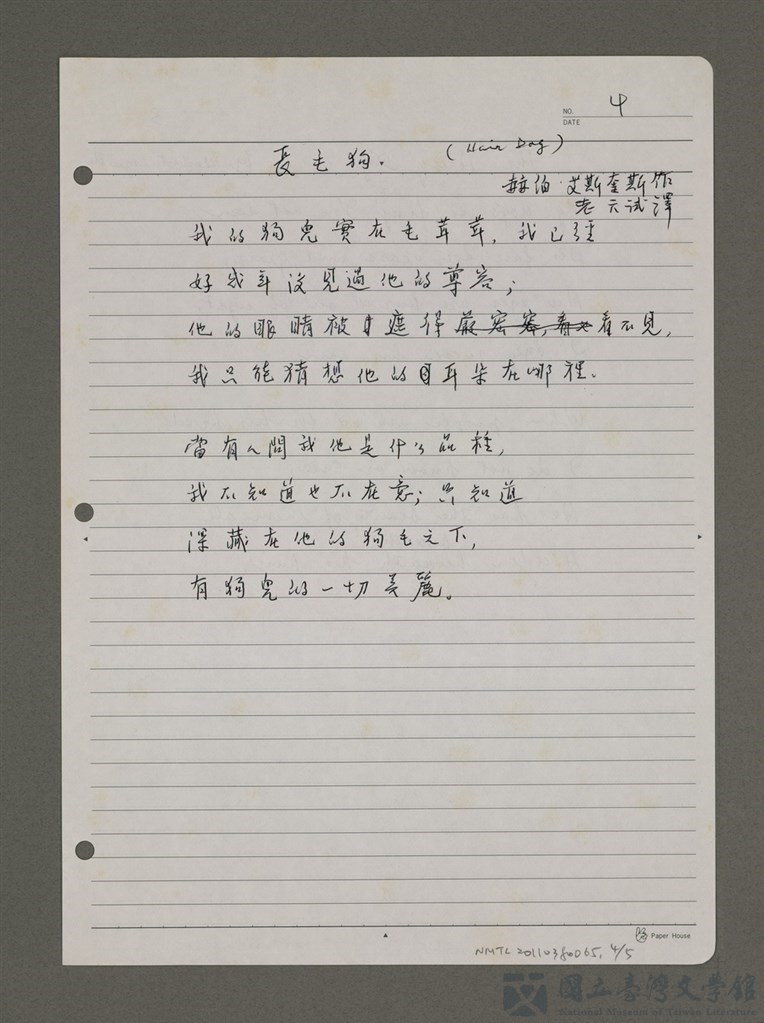 NO. 4
DATE
長毛狗. (Hair Dog)
赫伯·艾斯奎斯作
老六試譯
我的狗兒實在毛茸茸,我已經
好幾年沒見過他的尊容;
他的眼睛被遮得嚴密密,看不見,
我只能猜想他的耳朵在哪裡.
當有人問我他是什么品種,
我不知道也不在意;只知道
深藏在他的狗毛之下,
有狗兒的一切美麗。
Paper House
NMTL 20110380065, 4/5
國立臺灣文學館
National Museum of Taiwan Literature